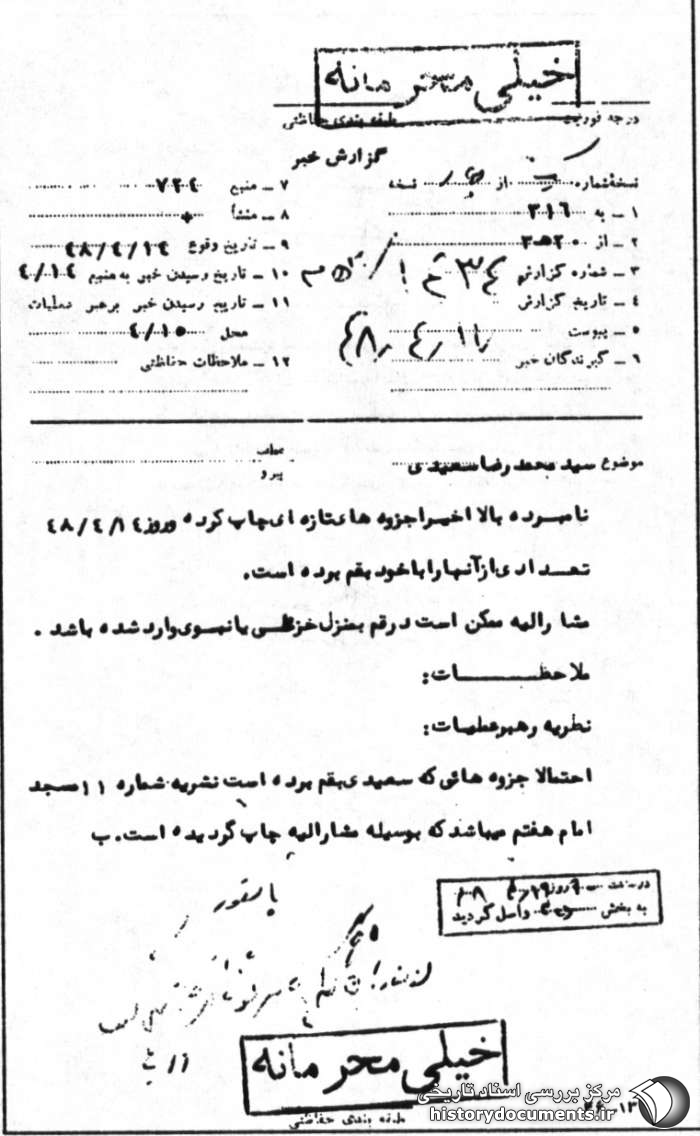 خیلی محرمانه
درجه فوریت
طبقه بندی حفاظتی
گزارش خبر
نسخه شماره از نسخه
۱ ــ به ۳۱۶
۲ ــ از
۳ ــ شماره گزارش
۴ ــ تاریخ گزارش
۵ ــ پیوست
۶ ــ گیرندگان خبر
۷ ــ منبع
۸ ــ منشأ
۹ ــ تاریخ وقوع ۴۸/۴/۱۴
۱۰ ــ تاریخ رسیدن خبر به منبع ۴/۱۴
۱۱ ــ تاریخ رسیدن خبر برهبر عملیات
محل ۴/۱۵
۱۲ ــ ملاحظات حفاظتی
موضوع سید محمد رضا سعیدی
عطف
پیرو
نامبرده بالا اخیرا جزوه های تازه ای چاپ کرده و روز ۴۸/۴/۱۴
تعدادی از آنها را با خود بقم برده است.
مشارالیه ممکن است در قم بمنزل خزعلی یا نبوی وارد شده باشد.
ملاحظات:
نظریه رهبر عملیات:
احتمالا جزوه هائی که سعیدی بقم برده است نشریه شماره ۱۱ مسجد
امام هفتم میباشد که بوسیله مشارالیه چاپ گردیده است. ب
به بخش واصل گردید
خیلی محرمانه
طبقه بندی حفاظتی
مرکز بررسی اسناد تاریخی
historydocuments.ir